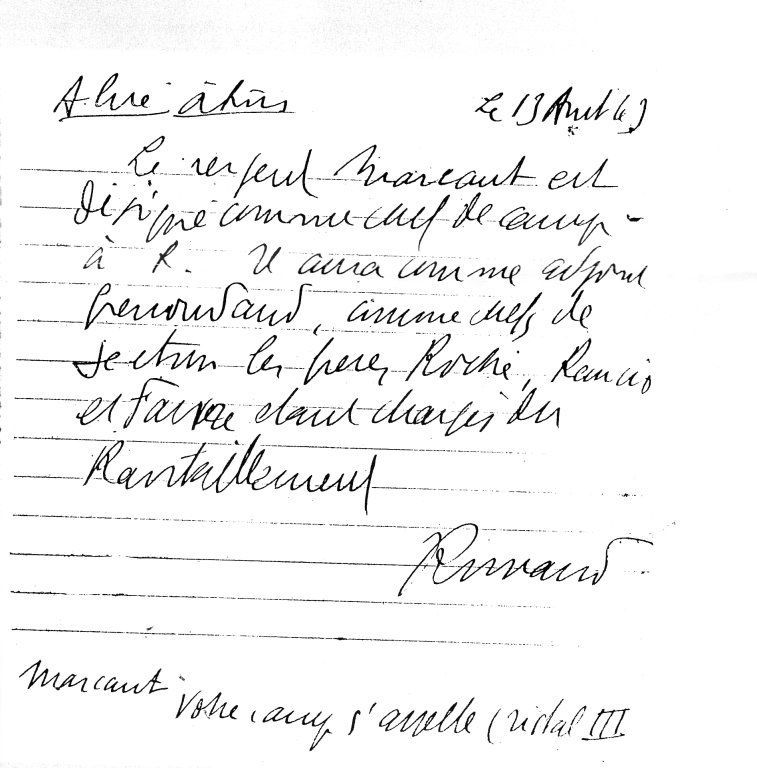 A lire à tous
Le 13 Aout 43
Le sergent Marcaut est
désigné comme chef de camp
à R. Il aura comme adjoint
Genoudand, comme chefs de
section les freres Roche, Rancio
et Favre etant chargés du
Ravitaillement
Romand
Marcaut
Votre camp s'appelle Cristal III